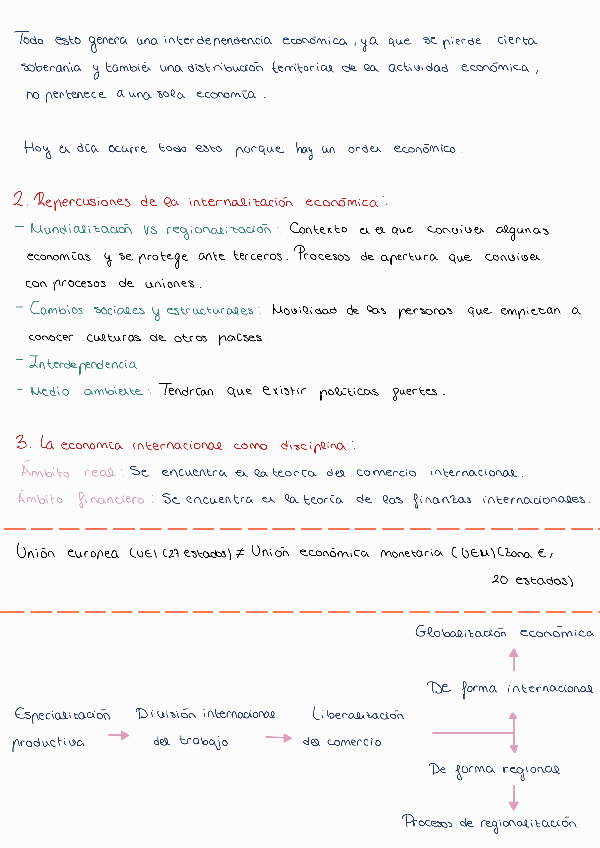 Todo esto genera una interdependencia económica, ya que se pierde cierta
soberanía y también una distribución territorial de la actividad económica,
no pertenece a una sola economía.
Hoy en día ocurre todo esto porque hay un orden económico.
2. Repercusiones de la internalización económica:
- Mundialización vs regionalización: Contexto en el que conviven algunas
economías y se protege ante terceros. Procesos de apertura que conviven
con procesos de uniones.
- Cambios sociales y estructurales: Movilidad de las personas que empiezan a
conocer culturas de otros países.
- Interdependencia
- Medio ambiente: Tendrían que existir políticas fuertes.
3. La economía internacional como disciplina:
Ámbito real: Se encuentra en la teoría del comercio internacional.
Ámbito financiero: Se encuentra en la teoría de las finanzas internacionales.
Unión europea (UE) (27 estados) ≠ Unión económica monetaria (UEM) (Zona €,
20 estados)
Globalización económica
De forma internacional
Especialización División internacional Liberalización
productiva → del trabajo → del comercio
De forma regional
Procesos de regionalización